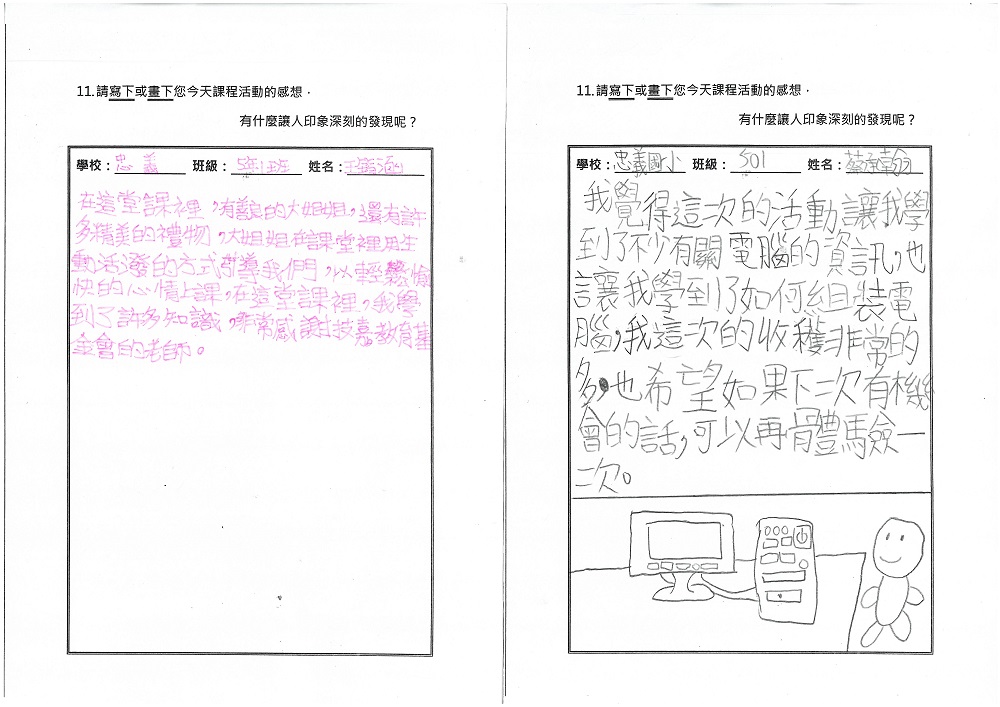 11.請寫下或畫下您今天課程活動的感想，
有什麼讓人印象深刻的發現呢？
學校：忠義 班級：5年1班 姓名：
在這堂課裡，有善良的大姐姐，還有許
多精美的禮物，大姐姐在課堂裡用生
動活潑的方式引導我們，以輕鬆愉
快的心情上課，在這堂課裡，我學
到了許多知識，非常感謝技嘉教育基
金會的老師。
11.請寫下或畫下您今天課程活動的感想，
有什麼讓人印象深刻的發現呢？
學校：忠義國小 班級：501 姓名：蔡承翰
我覺得這次的活動讓我學
到了不少有關電腦的資訊，也
讓我學到了如何組裝電
腦，我這次的收穫非常的
多，也希望如果下二次有機
會的話，可以再體驗一
二次。